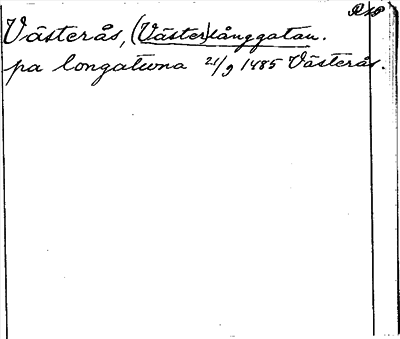 Västerås, (Väster)långgatan.
pa longatwna 21/9 1485 Västerås.